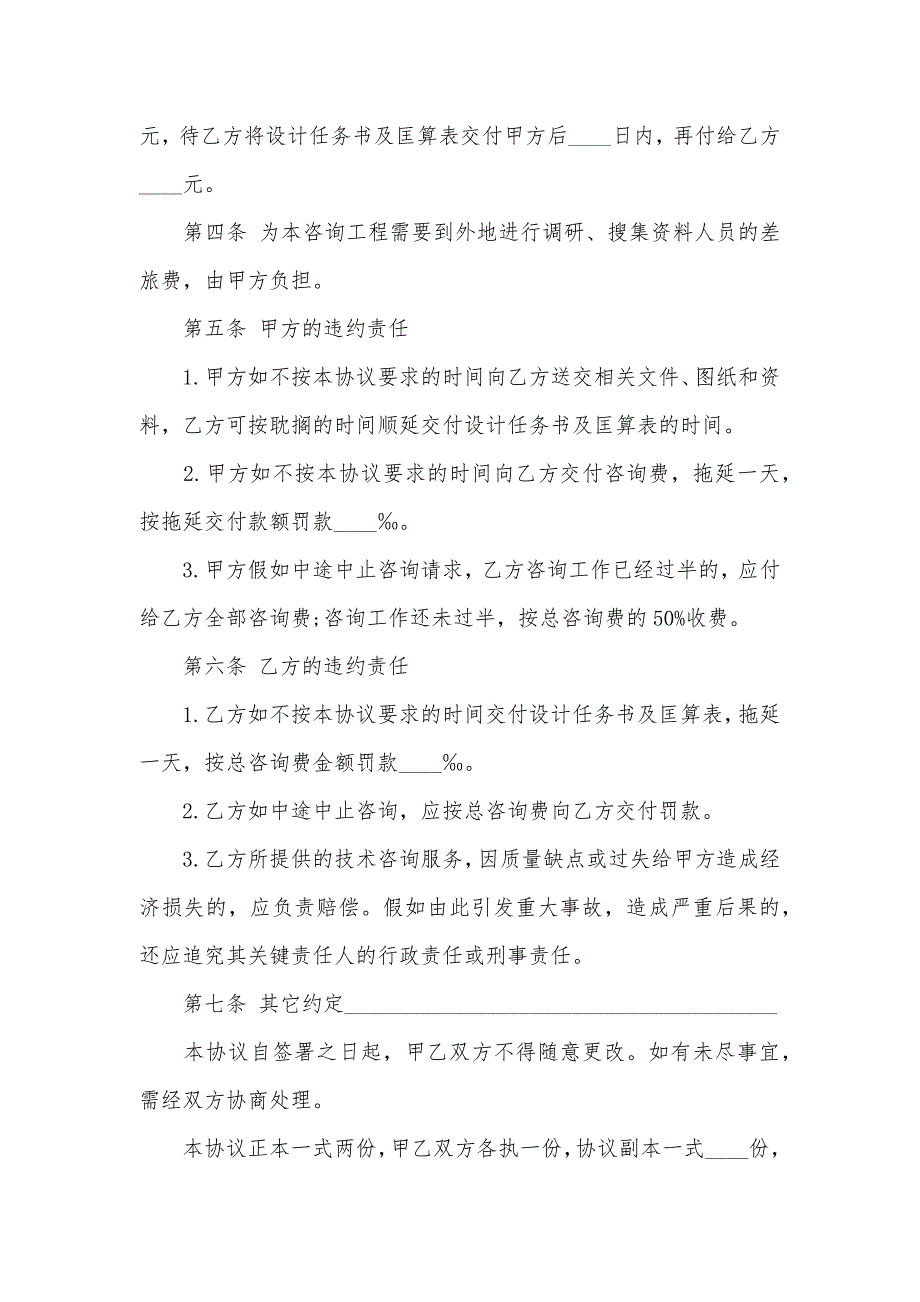 元，待乙方将设计任务书及匡算表交付甲方后____日内，再付给乙方
____元。
第四条 为本咨询工程需要到外地进行调研、搜集资料人员的差
旅费，由甲方负担。
第五条 甲方的违约责任
1.甲方如不按本协议要求的时间向乙方送交相关文件、图纸和资
料，乙方可按耽搁的时间顺延交付设计任务书及匡算表的时间。
2.甲方如不按本协议要求的时间向乙方交付咨询费，拖延一天，
按拖延交付款额罚款____‰。
3.甲方假如中途中止咨询请求，乙方咨询工作已经过半的，应付
给乙方全部咨询费;咨询工作还未过半，按总咨询费的50%收费。
第六条 乙方的违约责任
1.乙方如不按本协议要求的时间交付设计任务书及匡算表，拖延
一天，按总咨询费金额罚款____‰。
2.乙方如中途中止咨询，应按总咨询费向乙方交付罚款。
3.乙方所提供的技术咨询服务，因质量缺点或过失给甲方造成经
济损失的，应负责赔偿。假如由此引发重大事故，造成严重后果的，
还应追究其关键责任人的行政责任或刑事责任。
第七条 其它约定________________________________________
本协议自签署之日起，甲乙双方不得随意更改。如有未尽事宜，
需经双方协商处理。
本协议正本一式两份，甲乙双方各执一份，协议副本一式____份，